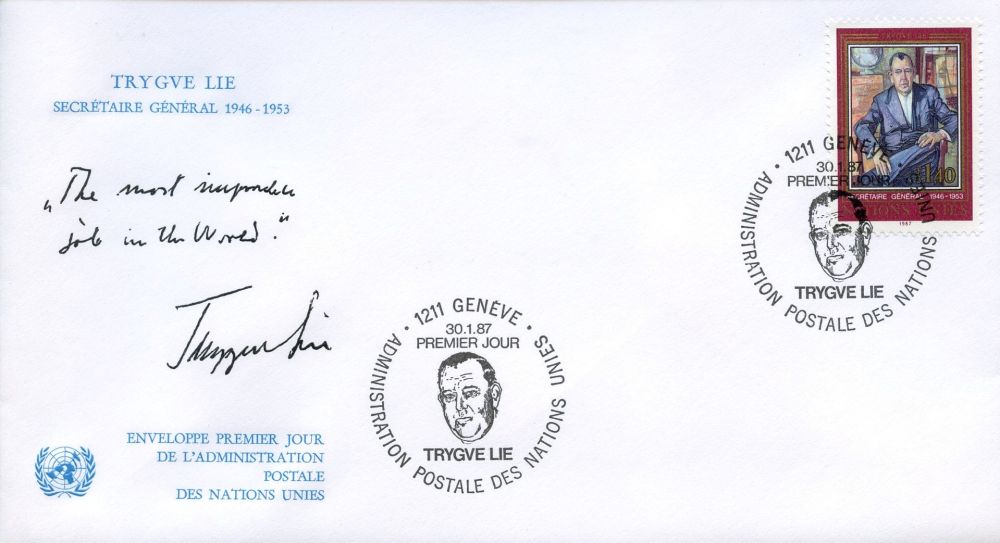 TRYGVE LIE
SECRÉTAIRE GÉNÉRAL 1946-1953
„The most impossible
job in the World."
Trygve Lie
ENVELOPPE PREMIER JOUR
DE L'ADMINISTRATION
POSTALE
DES NATIONS UNIES
1211 GENÈVE
30.1.87
PREMIER JOUR
TRYGVE LIE
ADMINISTRATION POSTALE DES NATIONS UNIES
TRYGVE LIE
1,40
SECRÉTAIRE GÉNÉRAL 1946-1953
NATIONS UNIES
1987
1211 GENÈVE
30.1.87
PREMIER JOUR
TRYGVE LIE
ADMINISTRATION POSTALE DES NATIONS UNIES